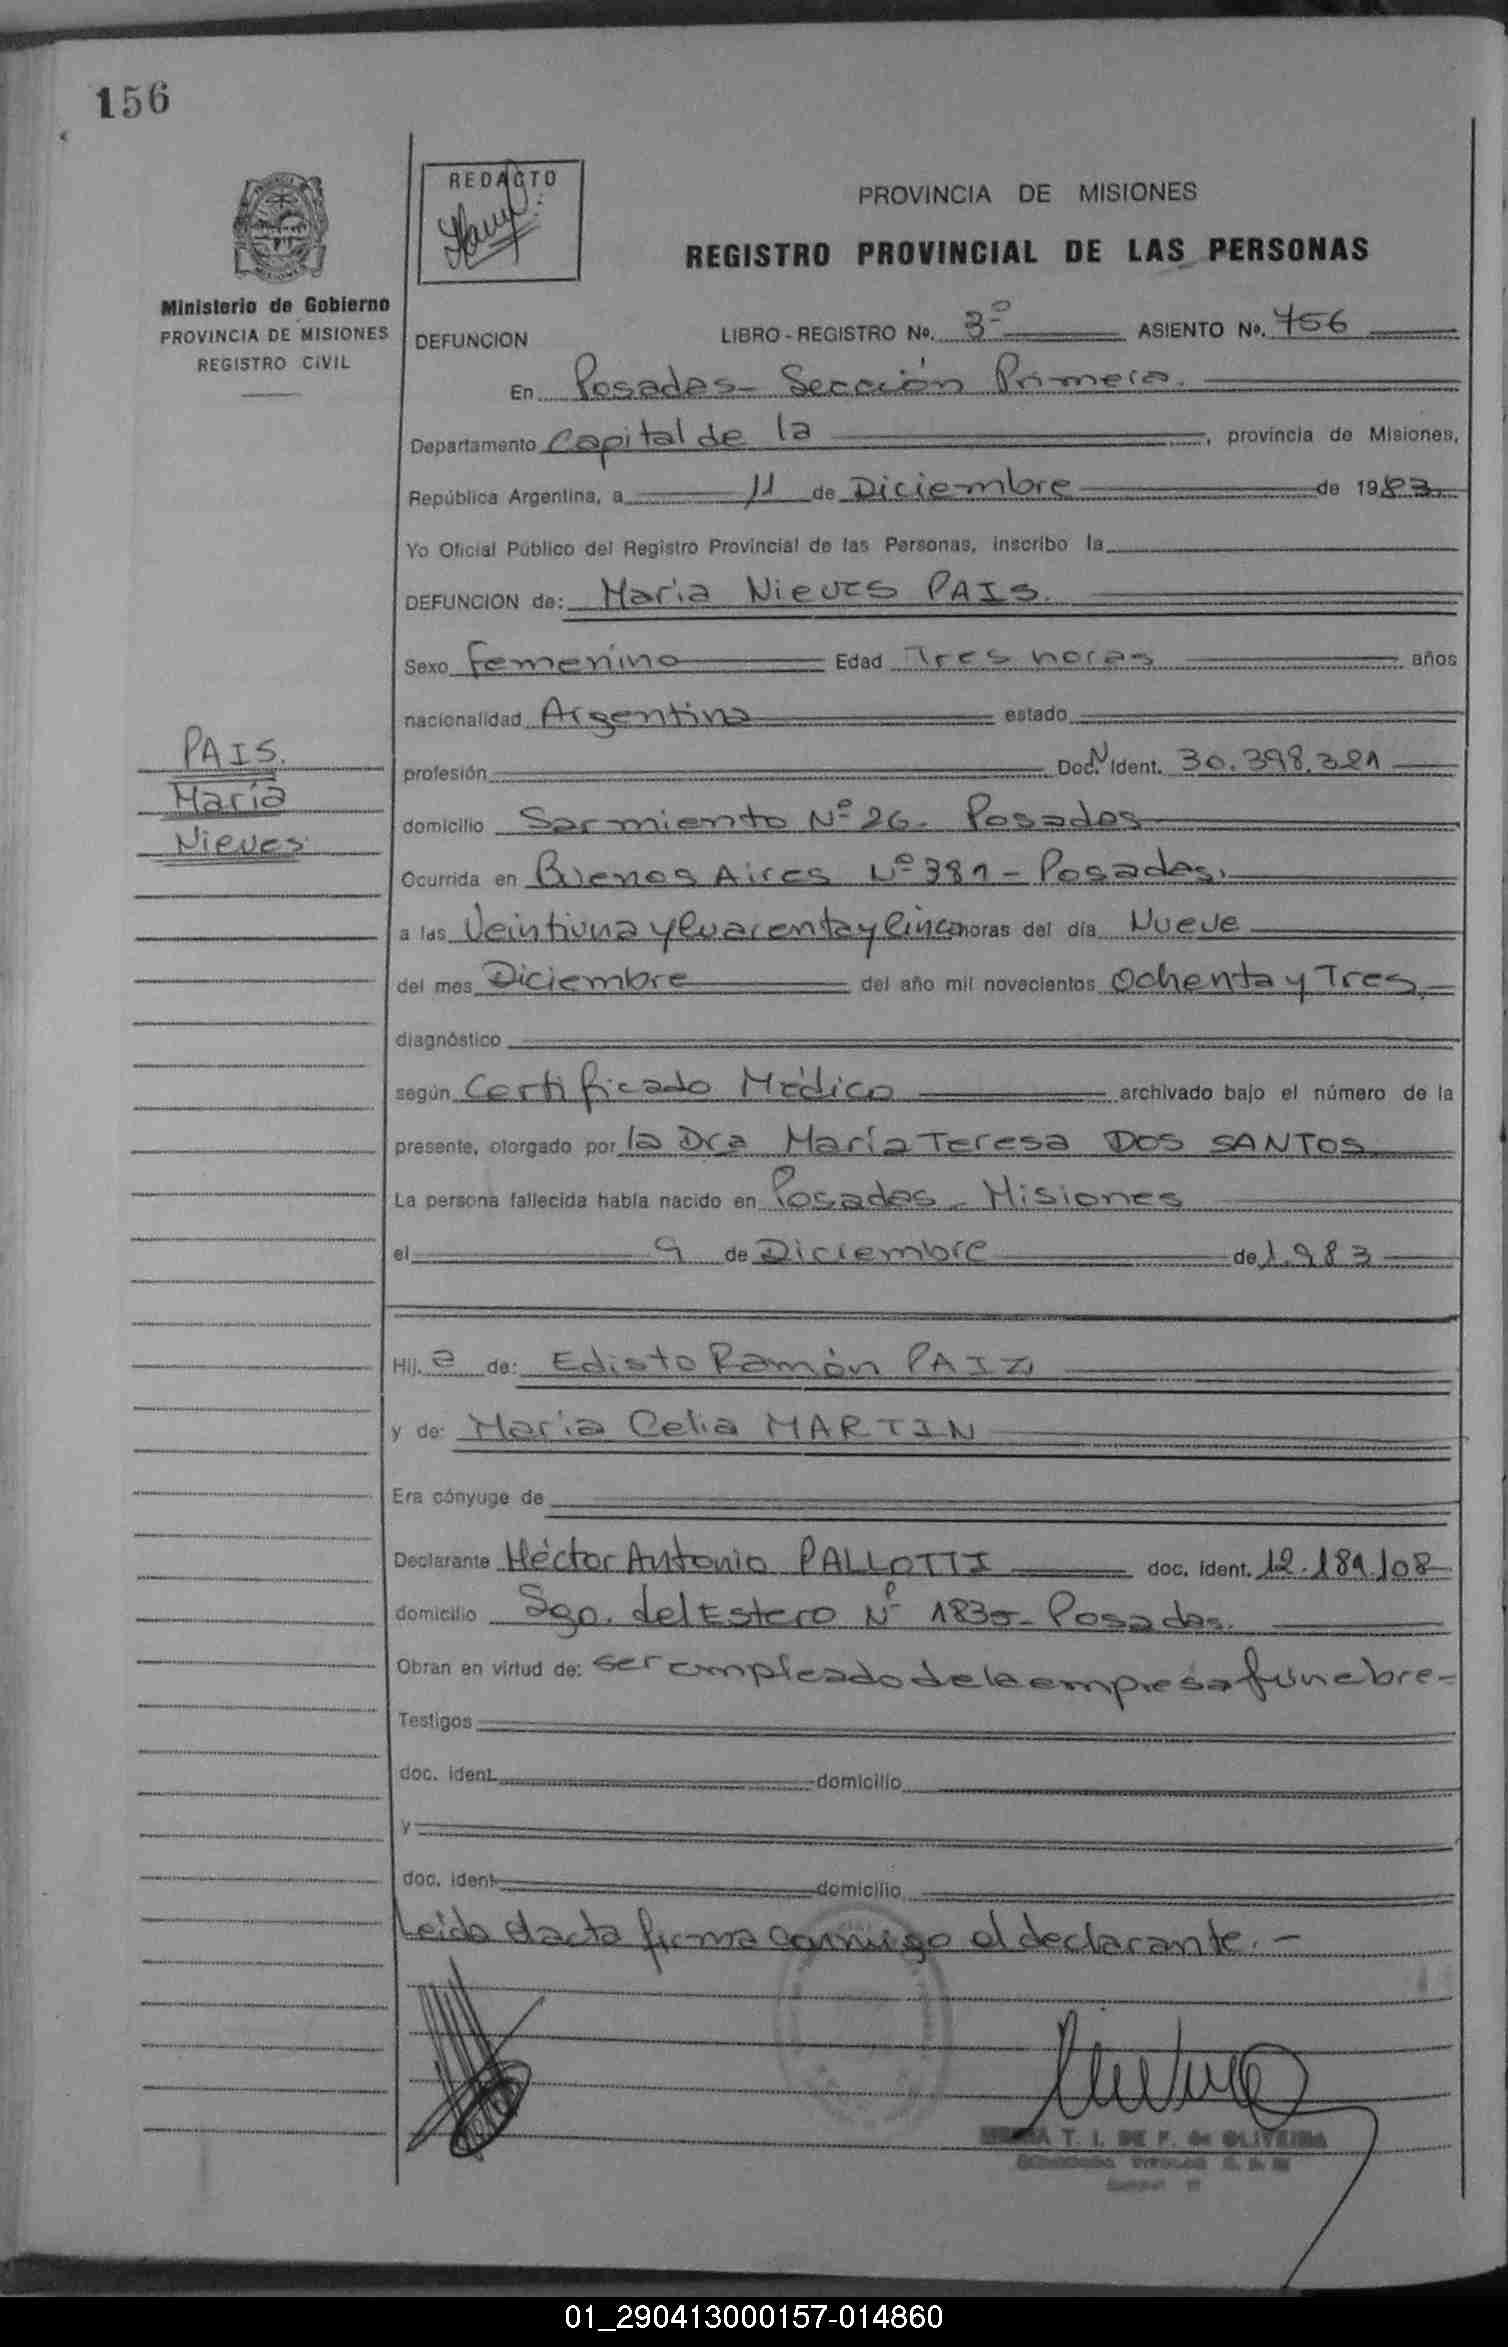 156
REDACTO
PROVINCIA DE MISIONES
REGISTRO PROVINCIAL DE LAS PERSONAS
Ministerio de Gobierno
PROVINCIA DE MISIONES
REGISTRO CIVIL
DEFUNCION LIBRO - REGISTRO Nº. 3º ASIENTO Nº. 756
En Posadas- Sección Primera.
Departamento Capital de la , provincia de Misiones,
República Argentina, a 11 de Diciembre de 1983.
Yo Oficial Público del Registro Provincial de las Personas, inscribo la
DEFUNCION de: María Nieves PAIS.
Sexo Femenino Edad Tres horas años
nacionalidad Argentina estado
PAIS.
María
Nieves.
profesión Doc. N Ident. 30.398.321
domicilio Sarmiento Nº 26. Posadas
Ocurrida en Buenos Aires Nº 381 - Posadas.
a las Veintiuna y Cuarenta y Cinco horas del día Nueve
del mes Diciembre del año mil novecientos Ochenta y Tres.
diagnóstico
según Certificado Médico archivado bajo el número de la
presente, otorgado por la Dra María Teresa DOS SANTOS
La persona fallecida había nacido en Posadas - Misiones
el 9 de Diciembre de 1.983
Hij. a de: Edisto Ramón PAIZ
y de: María Celia MARTIN
Era cónyuge de
Declarante Héctor Antonio PALLOTTI doc. ident. 12.189.108
domicilio Sgo. del Estero Nº 1835- Posadas.
Obran en virtud de: ser empleado de la empresa fúnebre-
Testigos
doc. ident. domicilio
y
doc. ident. domicilio
Leida el acta firma conmigo el declarante. -
T. I. DE F. de OLIVEIRA
01_290413000157-014860